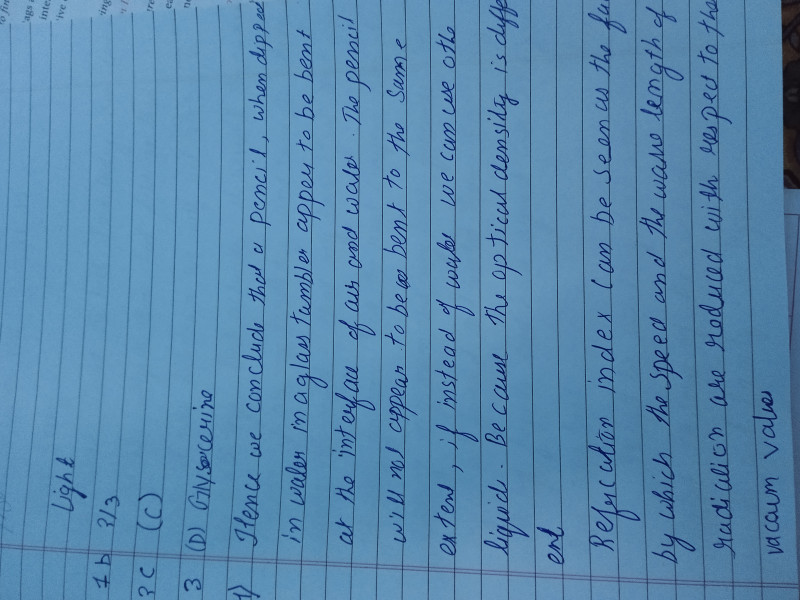 Light
1 b 2/3
2 C (C)
3 (D) Glyserine
1) Hence we conclude that a pencil, when dipped
in water in a glass tumbler apper to be bent
at the interface of air and water. The pencil
will not appear to be bent to the same
extent, if instead of water we can use othe
liquid. Because the optical density is diffe
ent
Refycation index can be seen as the fa
by which the speed and the wave length of
radiation are reduced with respect to the
vacaum value